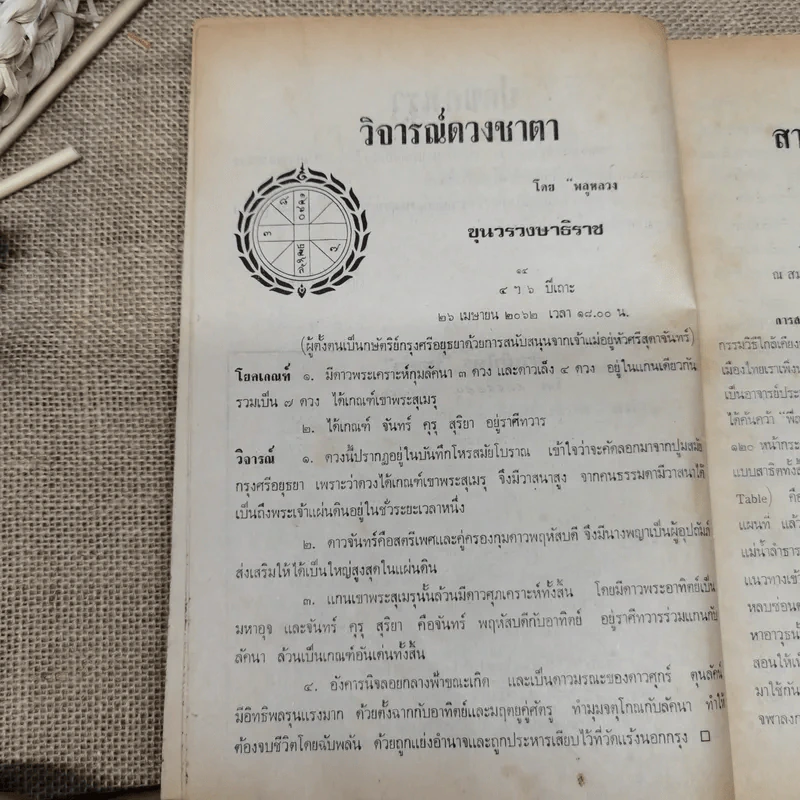 วิจารณ์ดวงชาตา
โดย "พลูหลวง
ขุนวรวงษาธิราช
๑๕
๔ ฯ ๖ ปีเถาะ
๒๖ เมษายน ๒๐๖๒ เวลา ๑๘.๐๐ น.
(ผู้ตั้งตนเป็นกษัตริย์กรุงศรีอยุธยาด้วยการสนับสนุนจากเจ้าแม่อยู่หัวศรีสุดาจันทร์)
โยคเกณฑ์ ๑. มีดาวพระเคราะห์กุมลัคนา ๓ ดวง และดาวเล็ง ๔ ดวง อยู่ในแกนเดียวกัน
รวมเป็น ๗ ดวง ได้เกณฑ์เขาพระสุเมรุ
๒. ได้เกณฑ์ จันทร์ คุรุ สุริยา อยู่ราศีทวาร
วิจารณ์ ๑. ดวงนี้ปรากฏอยู่ในบันทึกโหรสมัยโบราณ เข้าใจว่าจะคัดลอกมาจากปูมสมัย
กรุงศรีอยุธยา เพราะว่าดวงได้เกณฑ์เขาพระสุเมรุ จึงมีวาสนาสูง จากคนธรรมดามีวาสนาได้
เป็นถึงพระเจ้าแผ่นดินอยู่ในชั่วระยะเวลาหนึ่ง
๒. ดาวจันทร์คือสตรีเพศและคู่ครองกุมดาวพฤหัสบดี จึงมีนางพญาเป็นผู้อุปถัมภ์
ส่งเสริมให้ได้เป็นใหญ่สูงสุดในแผ่นดิน
๓. แกนเขาพระสุเมรุนั้นล้วนมีดาวศุภเคราะห์ทั้งสิ้น โดยมีดาวพระอาทิตย์เป็น
มหาอุจ และจันทร์ คุรุ สุริยา คือจันทร์ พฤหัสบดีกับอาทิตย์ อยู่ราศีทวารร่วมแกนกับ
ลัคนา ล้วนเป็นเกณฑ์อันเด่นทั้งสิ้น
๔. อังคารนิจลอยกลางฟ้าขณะเกิด และเป็นดาวมรณะของดาวศุกร์ ตนุลัคน์
มีอิทธิพลรุนแรงมาก ด้วยตั้งฉากกับอาทิตย์และมฤตยูคู่ศัตรู ทำมุมจตุโกณกับลัคนา ทำให้
ต้องจบชีวิตโดยฉับพลัน ด้วยถูกแย่งอำนาจและถูกประหารเสียบไว้ที่วัดแร้งนอกกรุง □
สา
ณ สม
การส
กรรมวิธีใกล้เคียง
เมืองไทยเราเพิ่ง
เป็นอาจารย์ประ
ได้ค้นคว้า "พี
๑๒๐ หน้ากระ
แบบสาธิตทั้ง
Table) คือ
แผนที่ แล้ว
แม่น้ำลำธาร
แนวทางเข้า
หลบซ่อน
หาอาวุธ
สอนให้
มาใช้กัน
จุฬาลงก